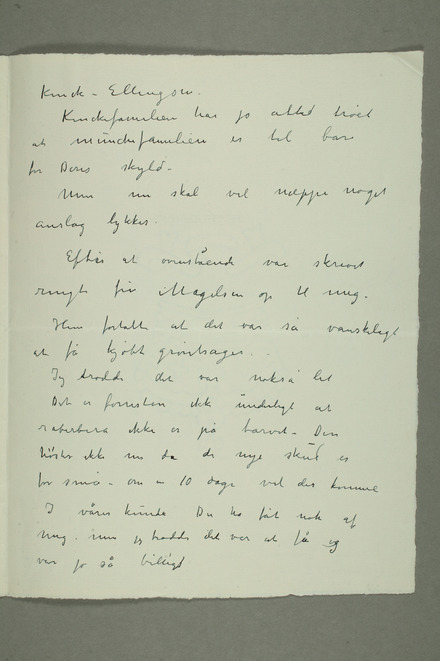 Kinck - Ellingsen.
Kinckfamilien har jo altid troet
at münchefamilien er til bare
for Deres skyld -
Men nu skal vel neppe noget
anslag lykkes.
Efter at ovenstående var skrevet
ringte frk Magelsen op til mig.
Hun fortalte at det var så vanskeligt
at få kjøbt grøntsager..
Jeg trodde det var nokså let
Det er forresten ikke underligt at
rabarbera ikke er på torvet - Den
høstes ikke nu da de nye skud er
for små - om en 10 dage vil der komme
I våres kunde Du ha fåt nok af
mig. men jeg trodde det var at få og
var jo så billigt